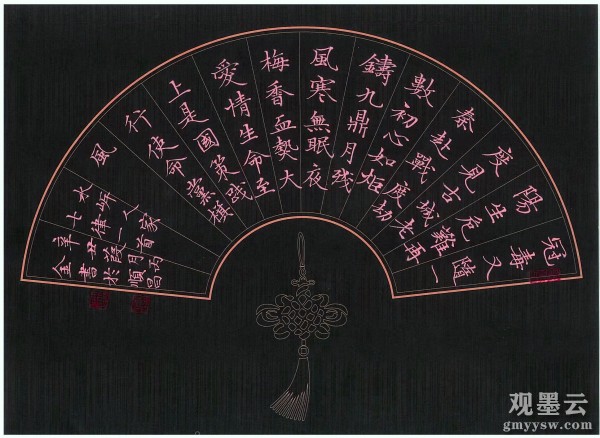 冠毒又隨一
陽生危難再
度見古城老
秦赴戰度劫
數初心如炬
鑄九鼎月殘
風寒無眠夜
梅香血熱大
愛情生命至
上是國策踐
行使命黨旗
風
水岍人家
七律一首
辛丑月
金書於順昌
观墨云
gmyysw.com